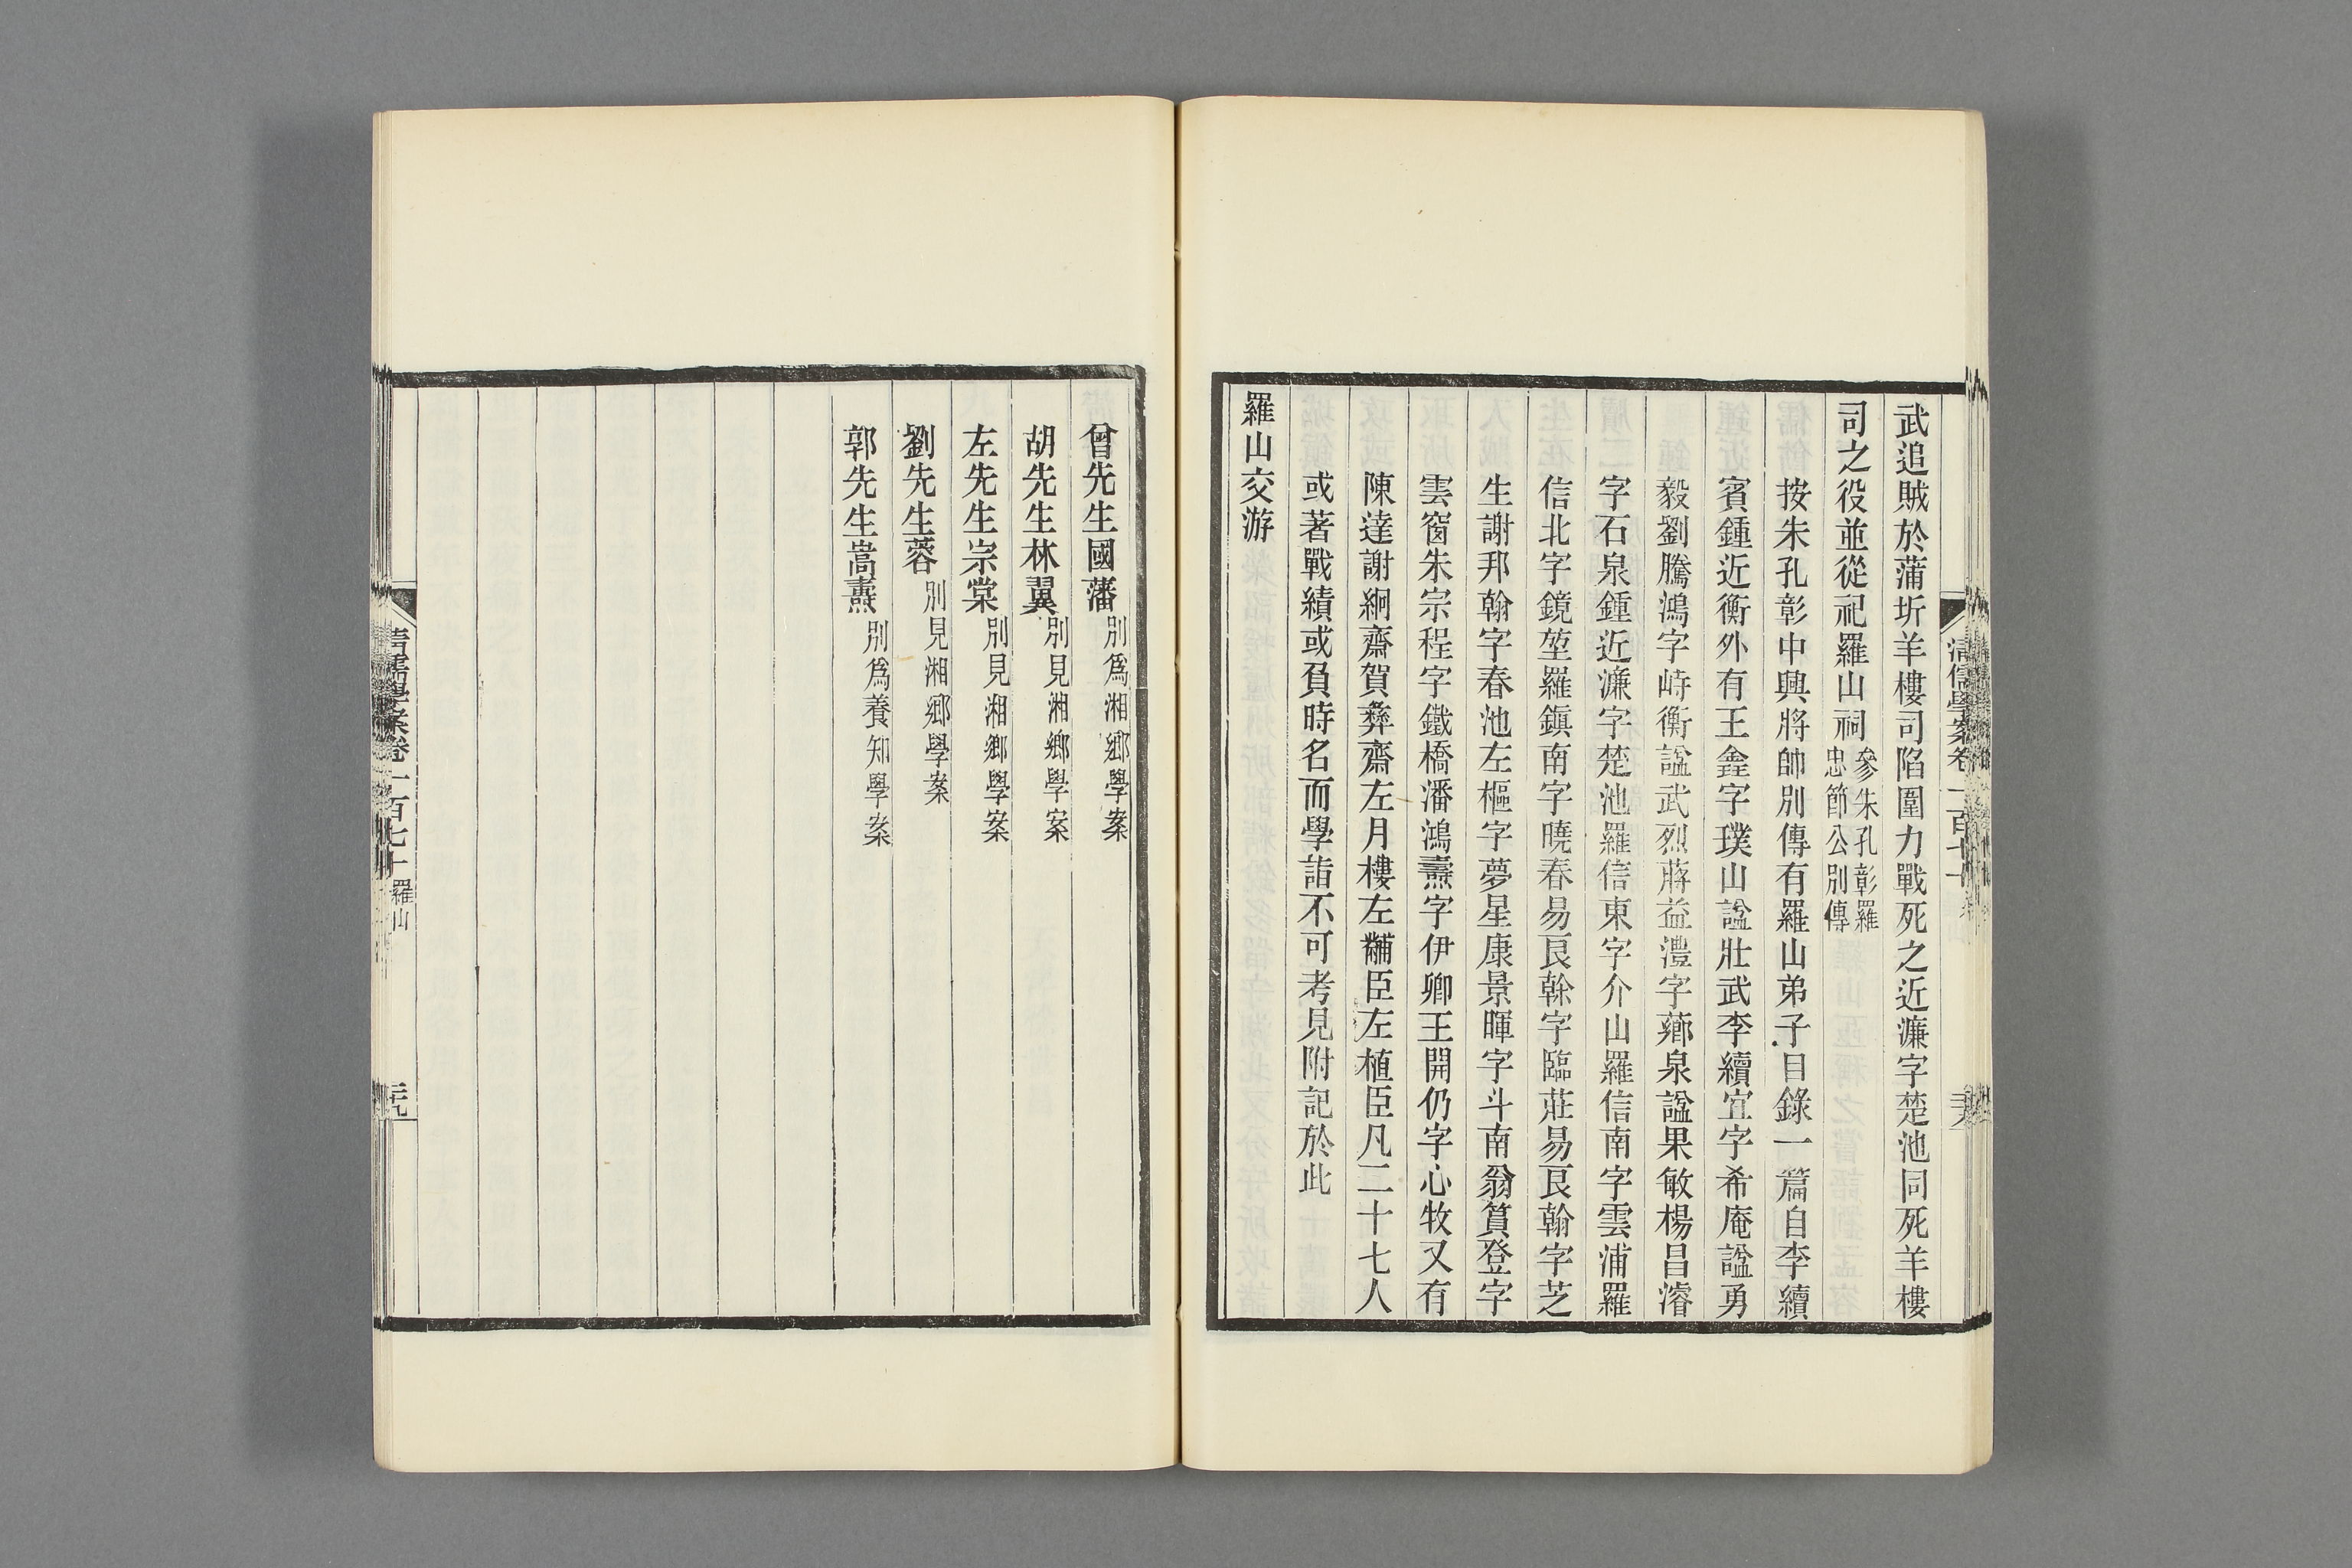 武追賊於蒲圻羊樓司陷圍力戰死之近濂字楚池同死羊樓
司之役並從祀羅山祠參朱孔彰羅忠節公別傳
按朱孔彰中興將帥別傳有羅山弟子目錄一篇自李續
賓鍾近衡外有王鑫字璞山諡壯武李續宜字希庵諡勇
毅劉騰鴻字峙衡諡武烈蔣益澧字薌泉諡果敏楊昌濬
字石泉鍾近濂字楚池羅信東字介山羅信南字雲浦羅
信北字鏡堃羅鎭南字曉春易良榦字臨莊易良翰字芝
生謝邦翰字春池左樞字夢星康景暉字斗南翁篔登字
雲窗朱宗程字鐵橋潘鴻燾字伊卿王開仍字心牧又有
陳達謝絅齋賀彝齋左月樓左黼臣左植臣凡二十七人
或著戰績或負時名而學詣不可考見附記於此
羅山交游
清儒學案卷一百七十
曾先生國藩別爲湘鄉學案
胡先生林翼別見湘鄉學案
左先生宗棠別見湘鄉學案
劉先生蓉別見湘鄉學案
郭先生嵩燾別爲養知學案
清儒學案卷一百七十 羅山